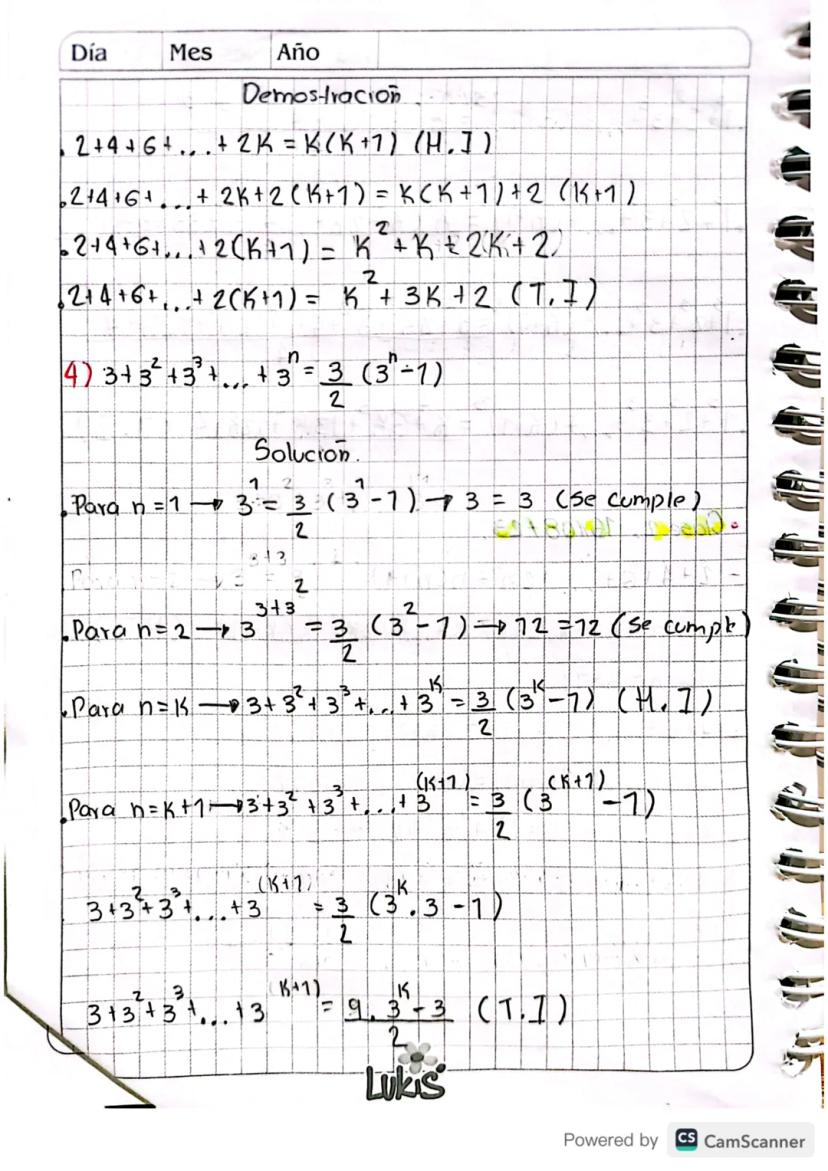 Día Mes Año
Demostración
. 2+4+6+...+ 2K = K(K+1) (H.I)
. 2+4+6+...+ 2K+2(K+1) = K(K+1)+2 (K+1)
. 2+4+6+...+2(K+1) = K²+K+2K+2
. 2+4+6+...+2(K+1) = K²+3K+2 (T.I)
4) 3+3²+3³+...+3ⁿ = 3/2 (3ⁿ-1)
Solución.
. Para n=1 → 3¹ = 3/2 (3¹-1) → 3 = 3 (se cumple)
. Para n=2 → 3^3+3^2 = 3/2 (3²-1) → 12 = 12 (se cumple)
. Para n=K → 3+3²+3³+...+3^K = 3/2 (3^K-1) (H.I)
. Para n=K+1 → 3+3²+3³+...+3^(K+1) = 3/2 (3^(K+1)-1)
3+3²+3³+...+3^(K+1) = 3/2 (3^K.3-1)
3+3²+3³+...+3^(K+1) = 9.3^K-3/2 (T.I)
Lukis
Powered by CS CamScanner